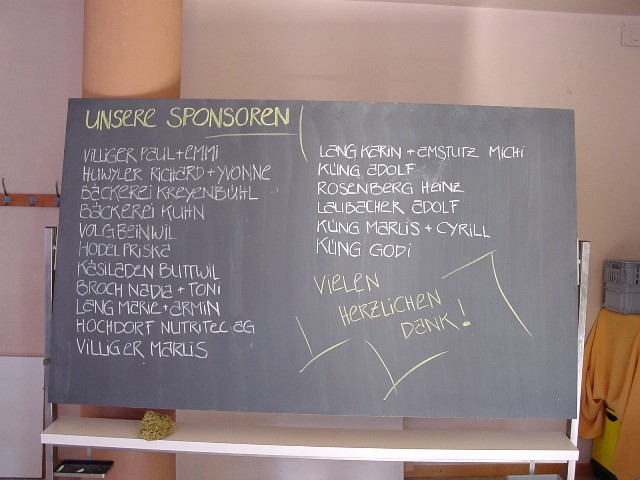 UNSERE SPONSOREN
VILLIGER PAUL + EMMI
HUWYLER RICHARD + YVONNE
BÄCKEREI KREYENBÜHL
BÄCKEREI KUHN
VOLG BEINWIL
HODEL PRISKA
KÄSILADEN BUTTWIL
BROCH NADIA + TONI
LANG MARIE + ARMIN
HOCHDORF NUTRITEC AG
VILLIGER MARLIS
LANG KARIN + AMSTUTZ MICHI
KÜNG ADOLF
ROSENBERG HEINZ
LAUBACHER ADOLF
KÜNG MARLIS + CYRILL
KÜNG GODI
VIELEN
HERZLICHEN
DANK!